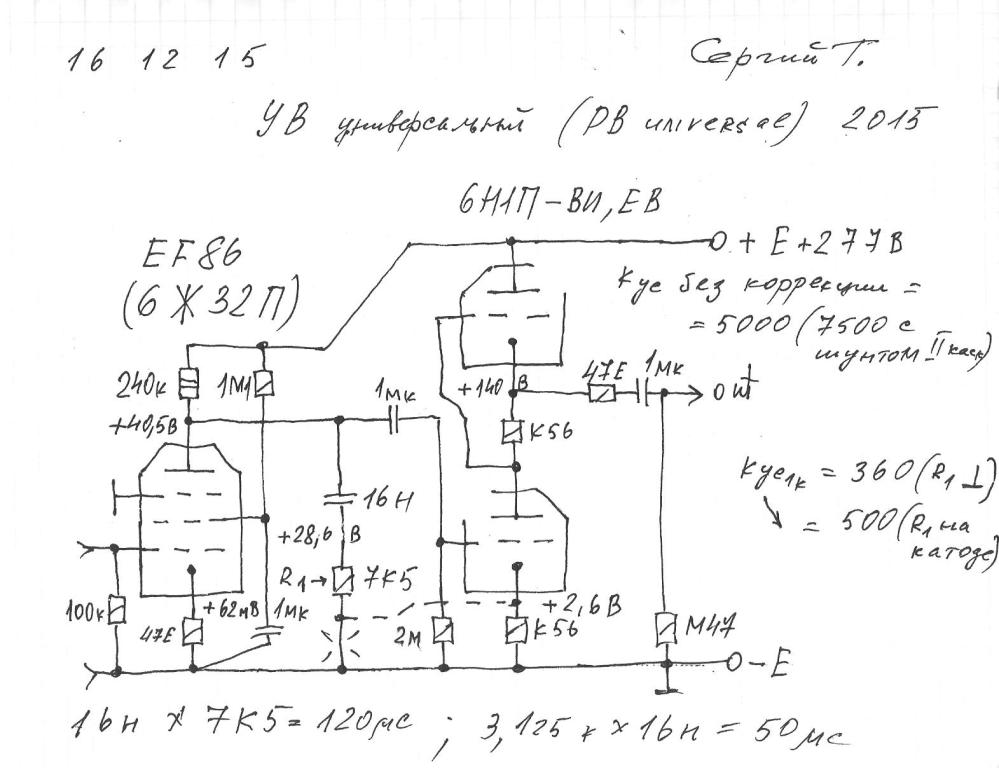 16 12 15
Сергий Т.
УВ универсальный (PB universal) 2015
6Н1П-ВИ, ЕВ
EF86
(6Ж32П)
+ E+277В
Кус без коррекции =
= 5000 (7500 с
шунтом II каск)
240к
1М1
+40,5В
1мк
+140 В
47Е
1мк
out
К56
16Н
+28,6 В
R1→
7К5
Кус1к = 360 (R1 ⊥)
= 500 (R1 на
катоде)
100к
+62мВ
47Е
1мк
2М
+2,6В
К56
М47
-Е
16н x 7К5 = 120мс ; 3,125к x 16н = 50мс